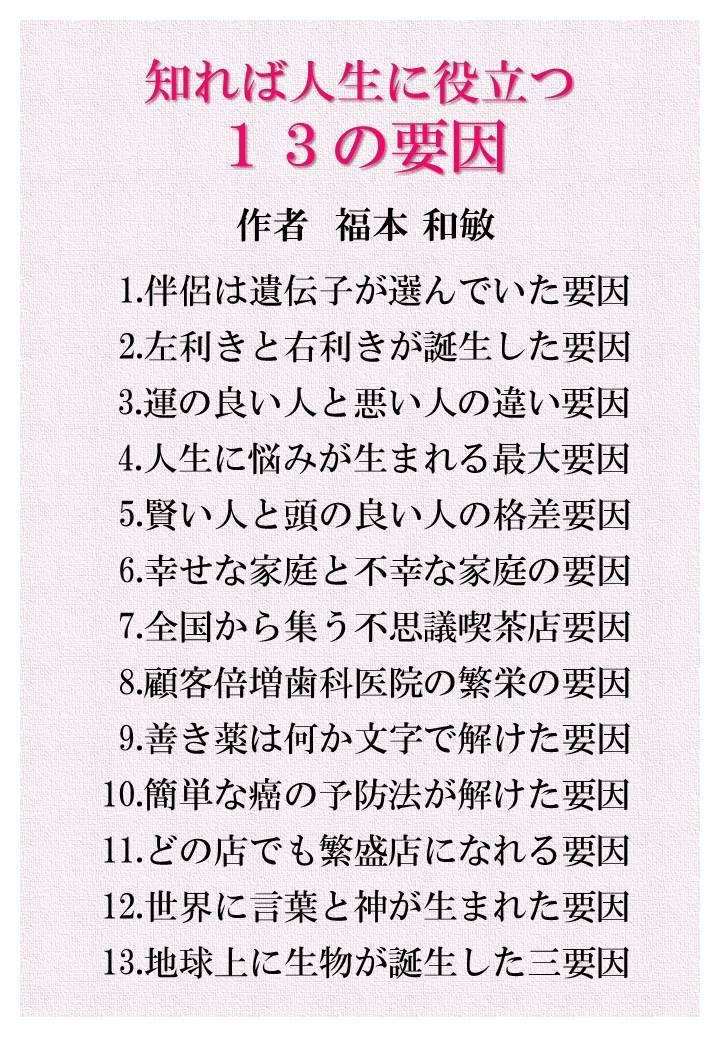 知れば人生に役立つ
１３の要因
作者 福本 和敏
1.伴侶は遺伝子が選んでいた要因
2.左利きと右利きが誕生した要因
3.運の良い人と悪い人の違い要因
4.人生に悩みが生まれる最大要因
5.賢い人と頭の良い人の格差要因
6.幸せな家庭と不幸な家庭の要因
7.全国から集う不思議喫茶店要因
8.顧客倍増歯科医院の繁栄の要因
9.善き薬は何か文字で解けた要因
10.簡単な癌の予防法が解けた要因
11.どの店でも繁盛店になれる要因
12.世界に言葉と神が生まれた要因
13.地球上に生物が誕生した三要因